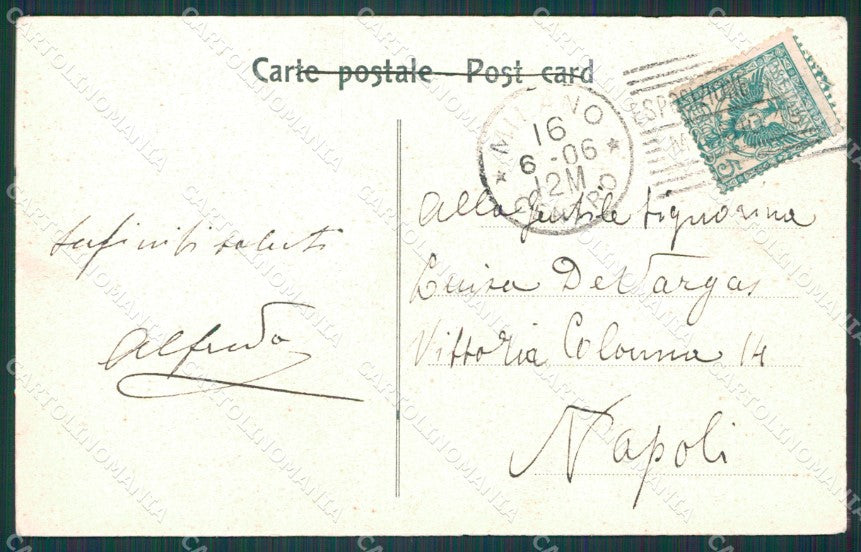 Carte postale - Post card
MILANO
16
6 - 06
12M
ESPOSIZIONE
5
Infiniti saluti
Alfredo
Alla gentile signorina
Luisa Del Vargas
Vittoria Colonna 14
Napoli
CARTOLINOMANIA